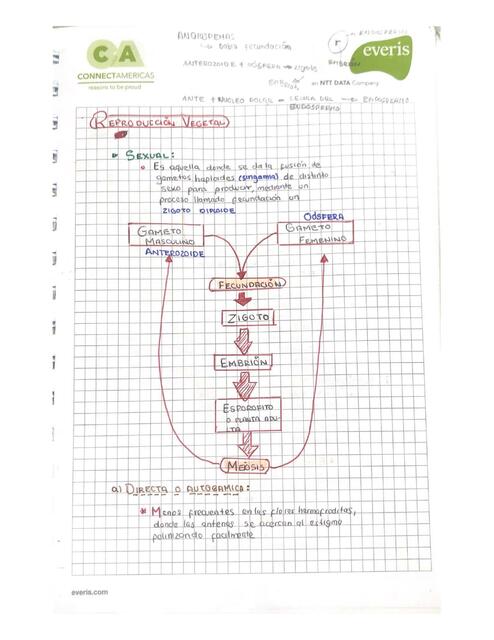 ANGIOSPERMAS
doble fecundación
ENDOSPERMO
C&A
CONNECTAMERICAS
reasons to be proud
everis
an NTT DATA Company
ANTEROZOIDE + OÓSFERA → zigoto
EMBRIÓN
ANTE + NUCLEO POLAR = CELULA DEL → ENDOSPERMO
ENDOSPERMO
REPRODUCCIÓN VEGETAL
SEXUAL:
Es aquella donde se da la fusión de
gametos haploides (singamia) de distinto
sexo para producir, mediante un
proceso llamado fecundación un
ZIGOTO DIPLOIDE
OÓSFERA
GAMETO
MASCULINO
ANTEROZOIDE
GAMETO
FEMENINO
FECUNDACIÓN
ZIGOTO
EMBRIÓN
ESPOROFITO
O PLANTA ADU-
LTA
MEIOSIS
a) DIRECTA O AUTOGAMICA:
* Menos frecuentes en las flores hermafroditas,
donde las anteras se acercan al estigma
polinizando facilmente
everis.com